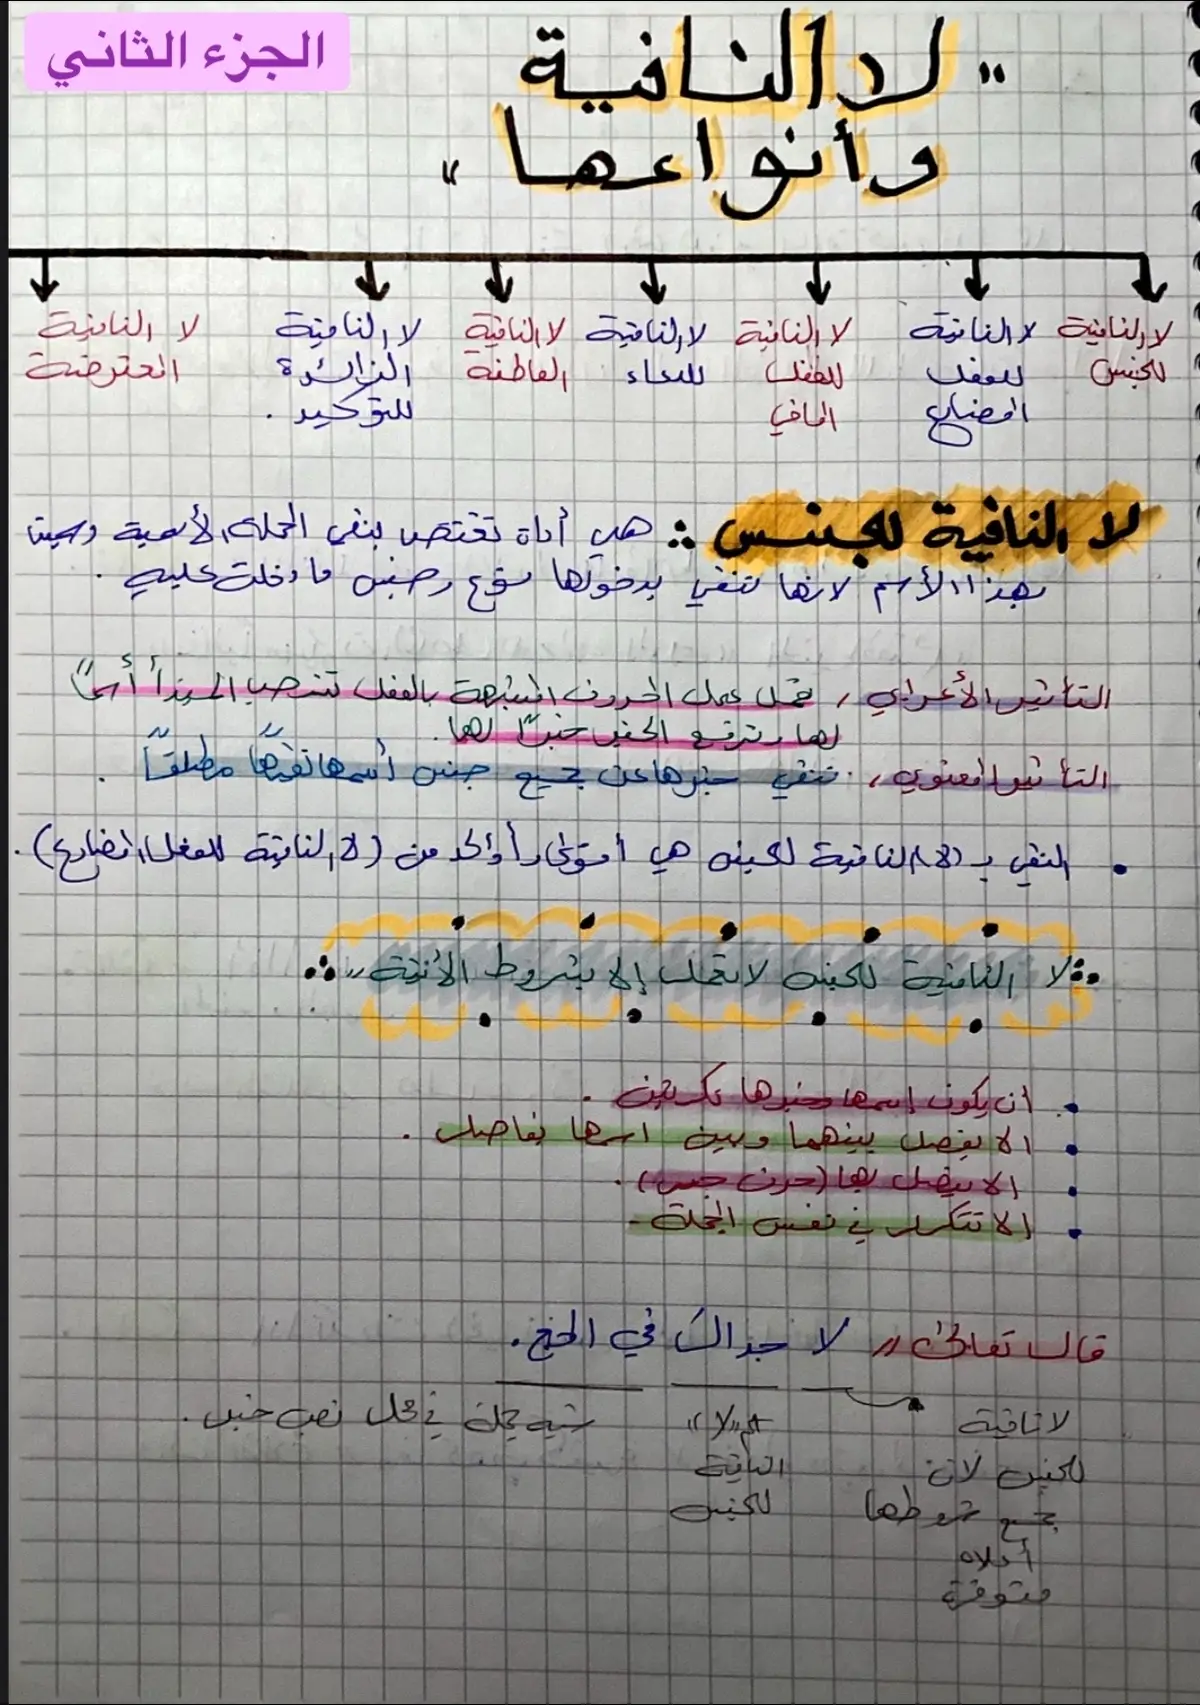 الجزء الثاني
" لا النافية
وأنواعها "
لا النافية للجنس
لا النافية للفعل المضارع
لا النافية للفعل الماضي
لا النافية للدعاء
لا النافية العاطفة
لا النافية الزائدة للتوكيد .
لا النافية المعترضة
لا النافية للجنس : هي أداة تختص بنفي الجملة الأسمية وسميت
بهذا الأسم لانها تنفي بدخولها نوع وجنس ما دخلت عليه .
التأثير الأعرابي , تعمل عمل الحروف المشبهة بالفعل تنصب المبتدأ أسماً
لها وترفع الخبر خبراً لها .
التأثير المعنوي , تنفي خبرها عن جميع جنس أسمها نفياً مطلقاً .
• النفي بـ (لا) النافية للجنس هي أقوى وأوكد من (لا النافية للفعل المضارع) .
لا النافية للجنس لا تعمل إلا بشروط الأتية "
• أن يكون إسمها وخبرها نكرتين .
• الا يفصل بينهما وبين اسمها بفاصل .
• الا يتصل بها (حرف جر) .
• الا تتكرر في نفس الجملة -
قال تعالى " لا جدالَ في الحج .
لا نافية
للجنس لان
جميع شروطها
أعلاه
متوفرة
اسم "لا"
النافية
للجنس
شبه جملة في محل نصب خبر .